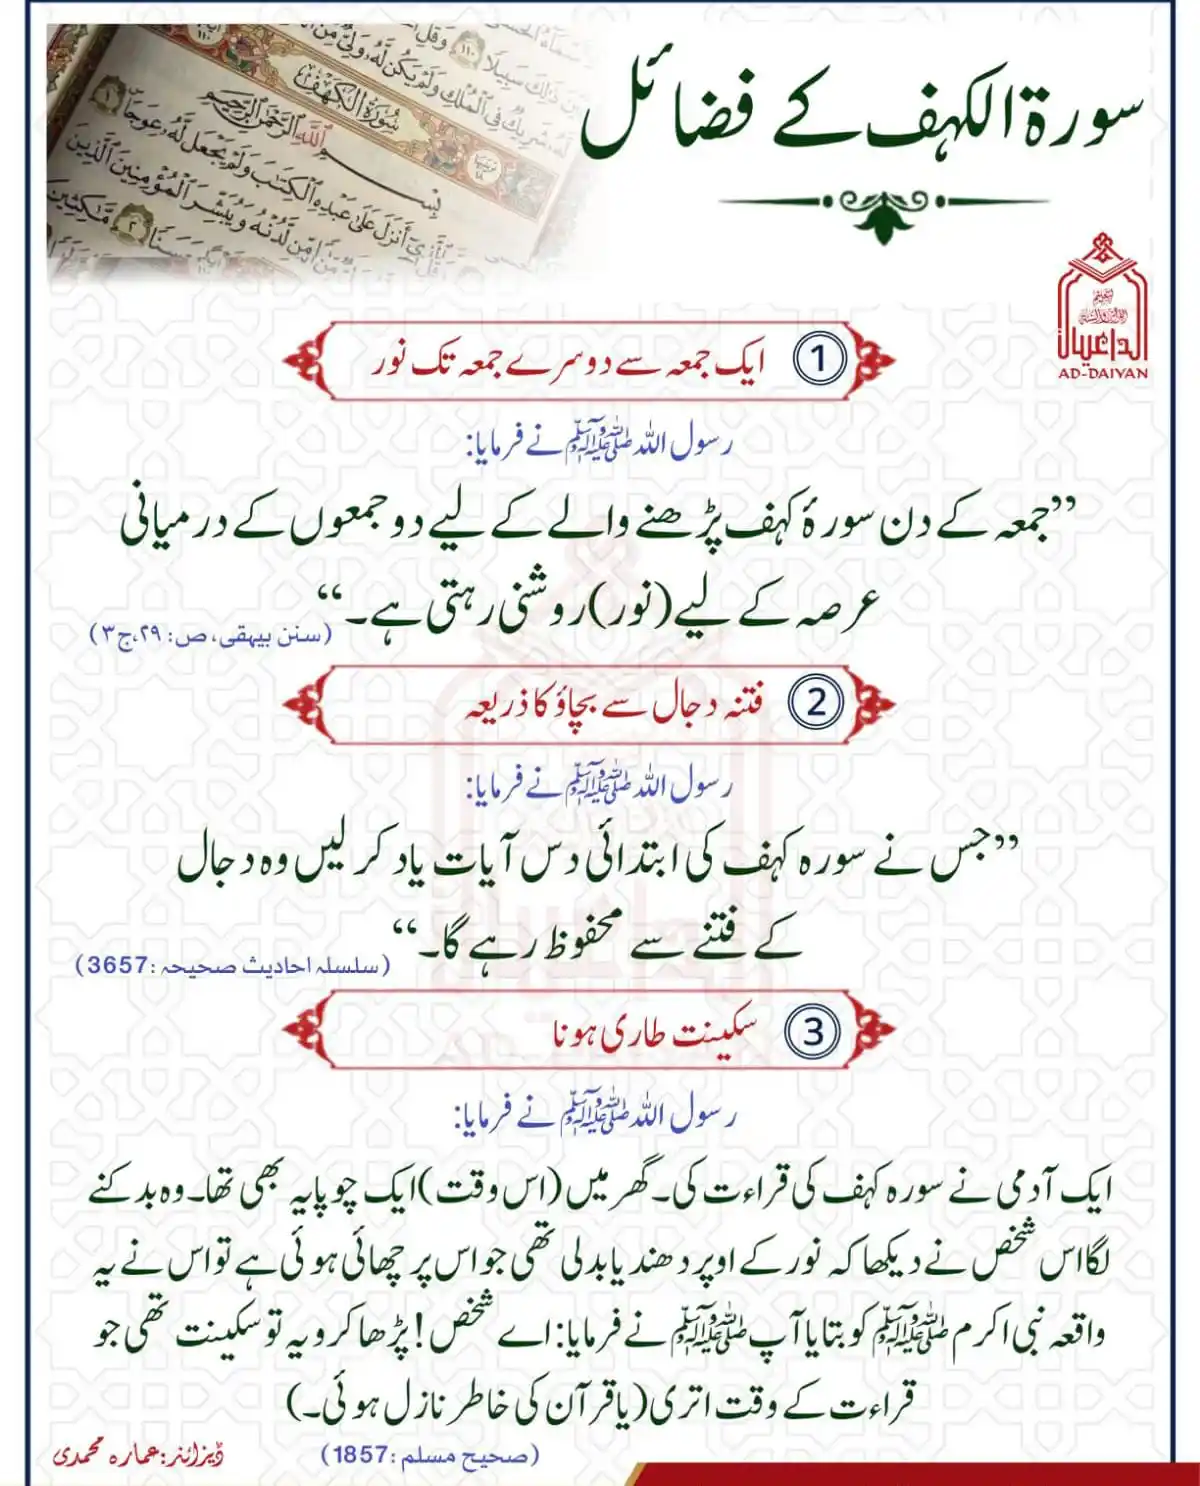 سورة الکہف کے فضائل
سُورَةُ الكَهْف
بِسْمِ اللَّهِ الرَّحْمَٰنِ الرَّحِيمِ
الداعیان
AD-DAIYAN
1 ایک جمعہ سے دوسرے جمعہ تک نور
رسول اللہ ﷺ نے فرمایا:
”جمعہ کے دن سورۂ کہف پڑھنے والے کے لیے دو جمعوں کے درمیانی
عرصہ کے لیے (نور) روشنی رہتی ہے۔“
(سنن بیہقی، ص: ۲۹، ج۳)
2 فتنہ دجال سے بچاؤ کا ذریعہ
رسول اللہ ﷺ نے فرمایا:
”جس نے سورہ کہف کی ابتدائی دس آیات یاد کر لیں وہ دجال
کے فتنے سے محفوظ رہے گا۔“
(سلسلہ احادیث صحیحہ: 3657)
3 سکینت طاری ہونا
رسول اللہ ﷺ نے فرمایا:
ایک آدمی نے سورہ کہف کی قراءت کی۔ گھر میں (اس وقت) ایک چوپایہ بھی تھا۔ وہ بدکنے
لگا اس شخص نے دیکھا کہ نور کے اوپر دھند یا بدلی تھی جو اس پر چھائی ہوئی ہے تو اس نے یہ
واقعہ نبی اکرم ﷺ کو بتایا آپ ﷺ نے فرمایا: اے شخص! پڑھا کرو یہ تو سکینت تھی جو
قراءت کے وقت اتری (یا قرآن کی خاطر نازل ہوئی۔)
(صحیح مسلم: 1857)
ڈیزائنر: عمارہ محمدی